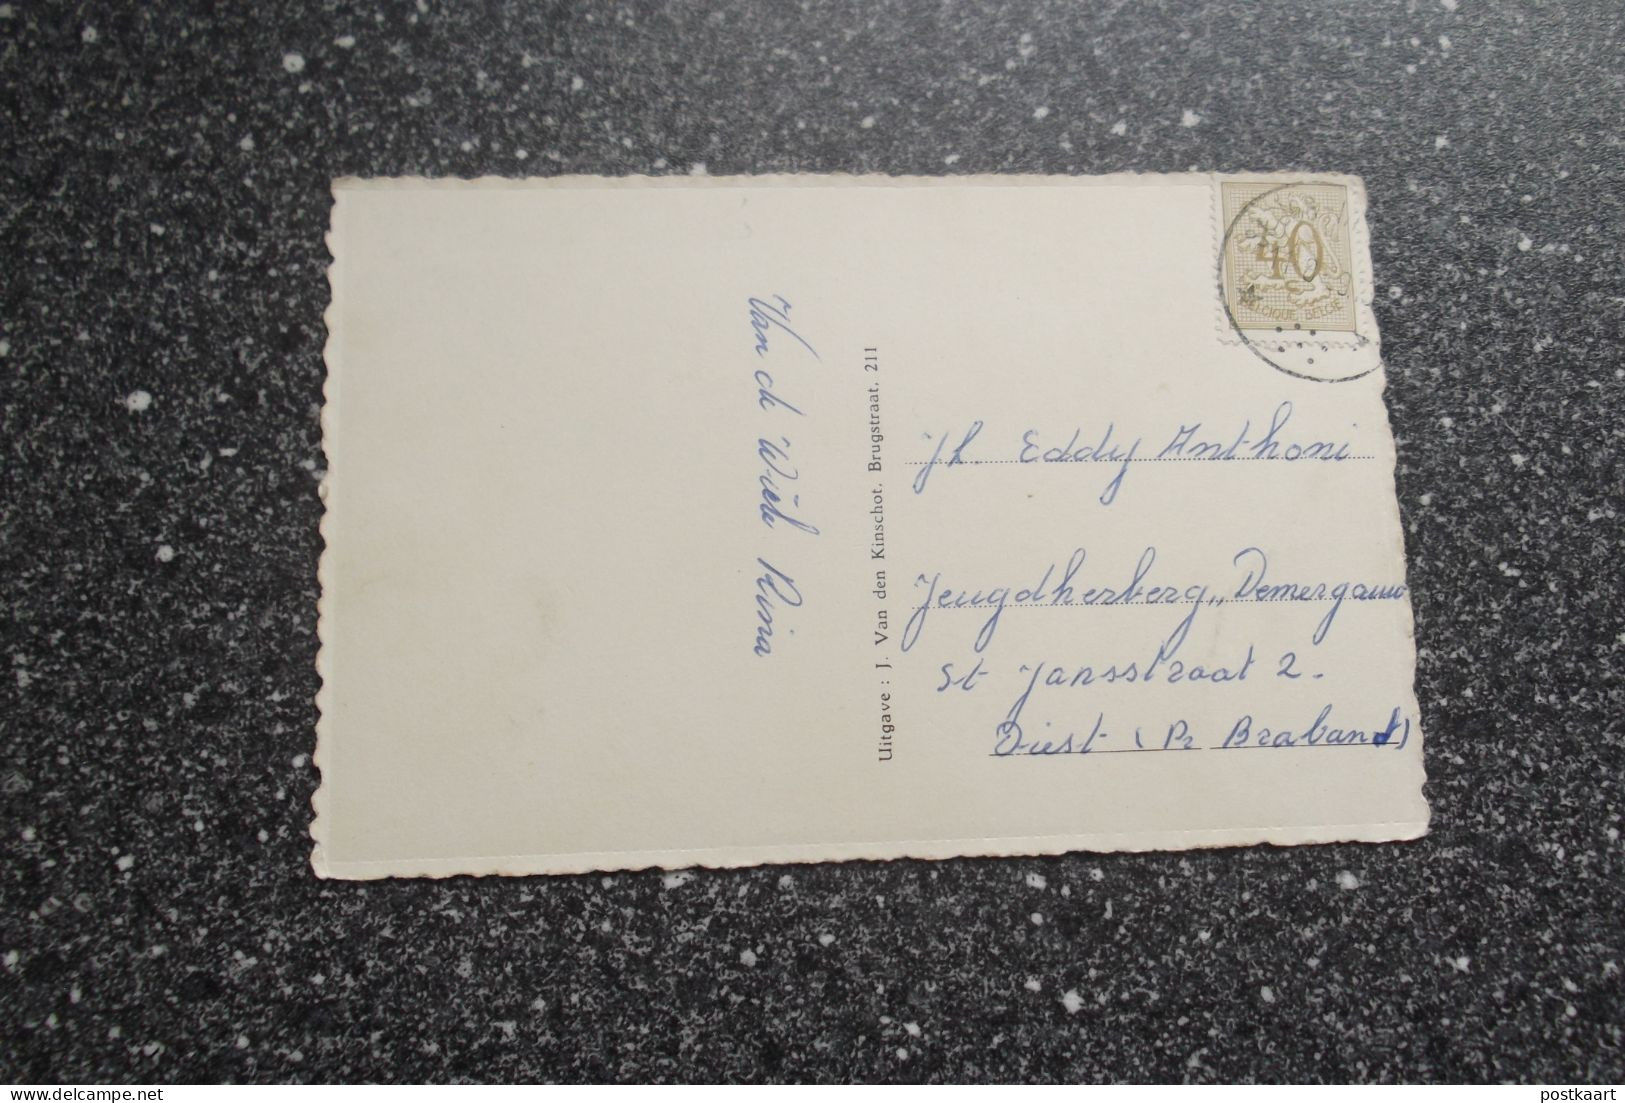 Van de Wiele Rina
Uitgave : J. Van den Kinschot, Brugstraat, 211
40
BELGIQUE BELGIE
Jh. Eddy Anthoni
Jeugdherberg „Demergouw
St Jansstraat 2.
Diest (Pr Brabant)
postkaart